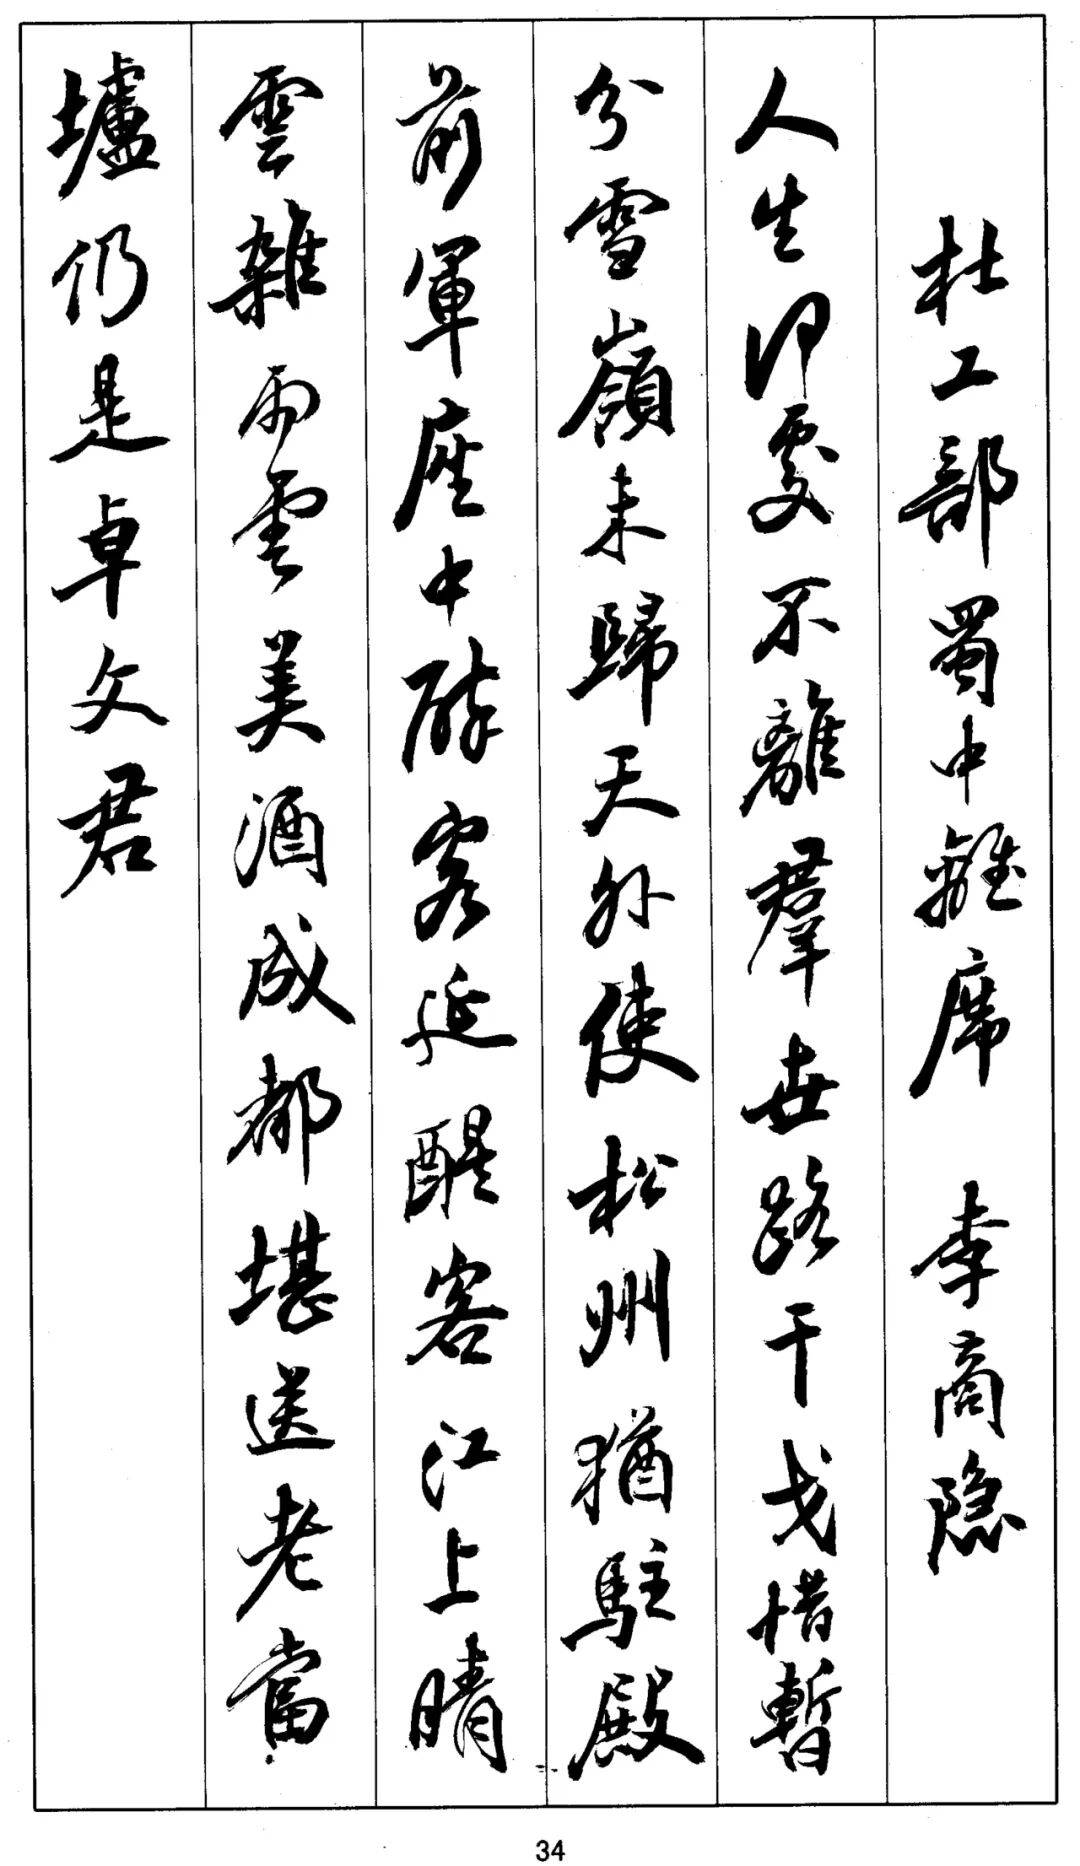 杜工部蜀中離席 李商隐
人生何處不離羣世路干戈惜暫
分雪嶺未歸天外使松州猶駐殿
前軍座中醉客延醒客江上晴
雲雜雨雲美酒成都堪送老當
壚仍是卓文君
34